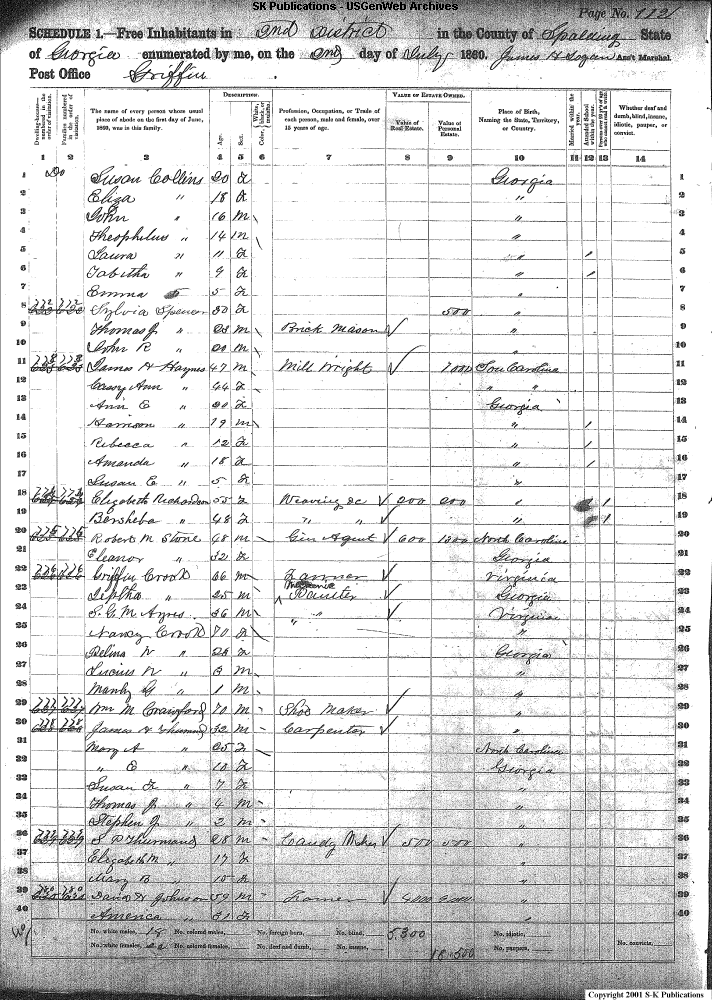 SK Publications - USGenWeb Archives
Page No. 112
SCHEDULE 1.—Free Inhabitants in 2nd District in the County of Spalding State
of Georgia enumerated by me, on the 2nd day of July 1860. James H Logan Ass't Marshal.
Post Office Griffin
Dwelling-houses—numbered in the order of visitation.
Families numbered in the order of visitation.
The name of every person whose usual place of abode on the first day of June, 1860, was in this family.
DESCRIPTION.
Age.
Sex.
Color, White, black, or mulatto.
Profession, Occupation, or Trade of each person, male and female, over 15 years of age.
VALUE OF ESTATE OWNED.
Value of Real Estate.
Value of Personal Estate.
Place of Birth, Naming the State, Territory, or Country.
Married within the year.
Attended School within the year.
Whether deaf and dumb, blind, insane, idiotic, pauper, or convict.
1 2 3 4 5 6 7 8 9 10 11 12 13 14
1 Susan Collins 20 F Georgia 1
2 Eliza " 18 F " 2
3 John " 16 M \ " 3
4 Theophilus " 14 M \ " 4
5 Laura " 11 F " / 5
6 Tabitha " 9 F " / 6
7 Emma 5 F " 7
8 Sylvia Spencer F 500 " 8
9 Thomas J " M \ Brick Mason " 9
10 John R " 20 M \ " 10
11 James H Haynes 47 M \ Mill Wright Sou Carolina 11
12 Cassy Ann " 44 F " " 12
13 Ann E " 20 F Georgia 13
14 Harrison " 19 M \ " / 14
15 Rebecca " 12 F " / 15
16 Amanda " 18 F " / 16
17 Susan E " 5 F " 17
18 Elizabeth Richardson 55 F Weaving &c 200 200 " / 18
19 Bersheba " 48 F " " " / 19
20 Robert M Stone 48 M Gin Agent 600 North Carolina 20
21 Eleanor " 32 F Georgia 21
22 Griffin Crook 66 M Farmer Virginia 22
23 Jeptha " 25 M Painter Georgia 23
24 S. G. M Ayres 36 M " " Virginia 24
25 Nancy Crook 70 F " 25
26 F Georgia 26
27 Lucius N " M " 27
28 Manly G " 1 M " 28
29 Wm M Crawford 70 M Shoe Maker " 29
30 James H Thurmond 32 M Carpenter " 30
31 Mary A " 25 F North Carolina 31
32 " E " 10 F Georgia 32
33 Susan F " 7 F " 33
34 Thomas J " 4 M " 34
35 Stephen J " 2 M " 35
36 S P Thurmand 28 M Candy Maker 500 500 " 36
37 Elizabeth M " 17 F " 37
38 Mary B " 10 F " 38
39 David H Johnson 59 M Farmer " 39
40 America " 31 F " 40
No. white males, 18 No. colored males, No. foreign born, No. blind, 5300 No. idiotic,
No. white females, 22 No. colored females, No. deaf and dumb, No. insane, 18.500 No. paupers, No. convicts,
Copyright 2001 S-K Publications